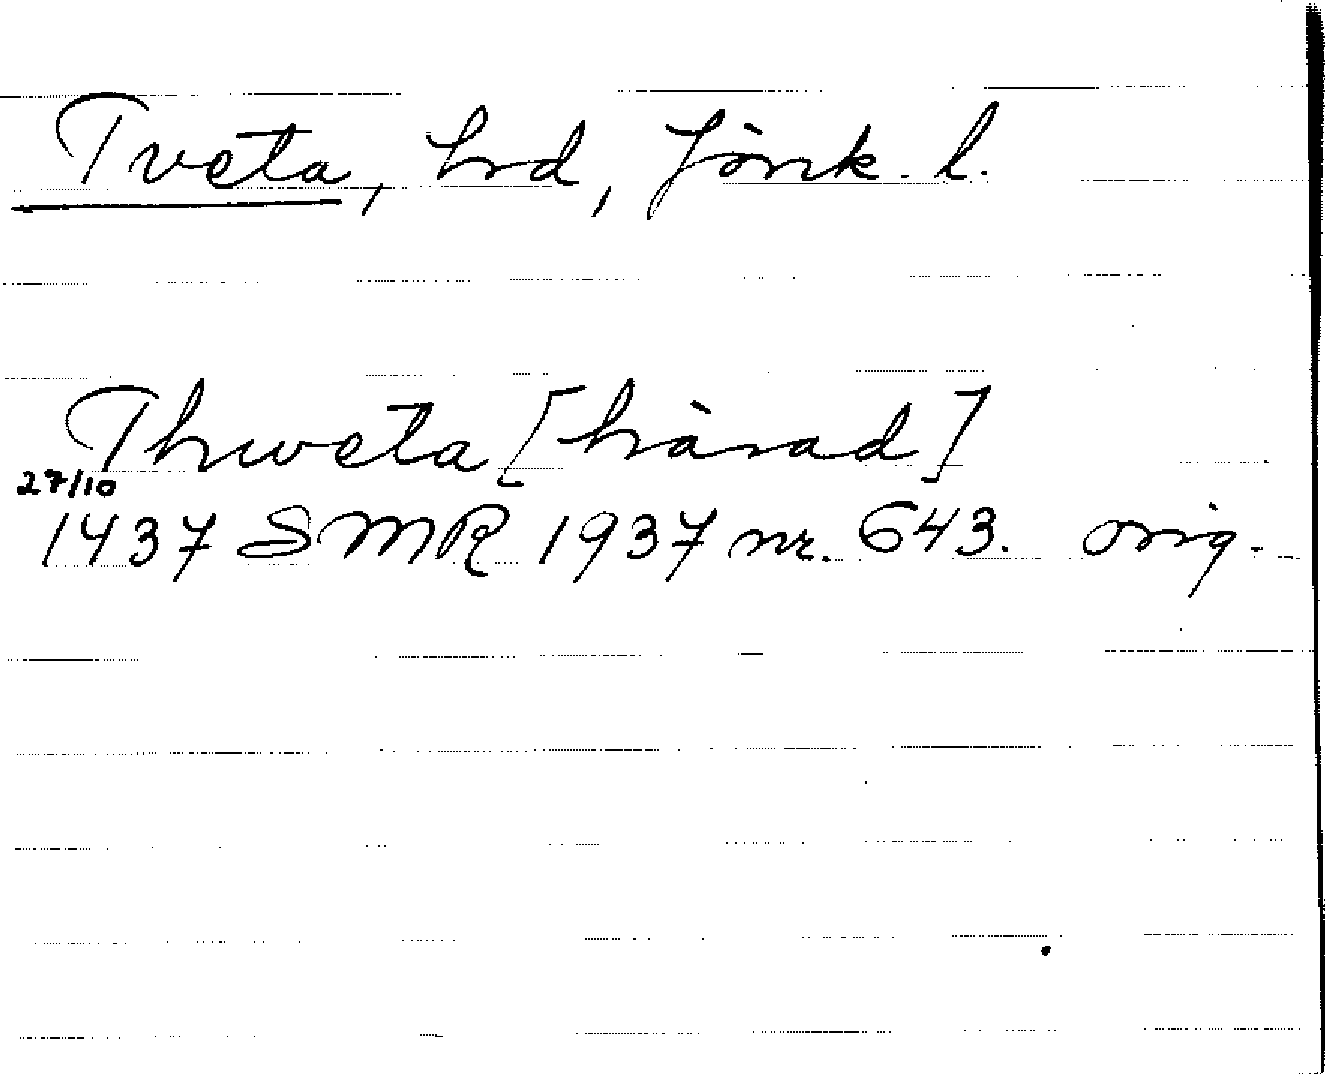 Tveta, hrd, Jönk. l.
Thweta [härad]
27/10
1437 SMR 1937 nr. 643. orig.